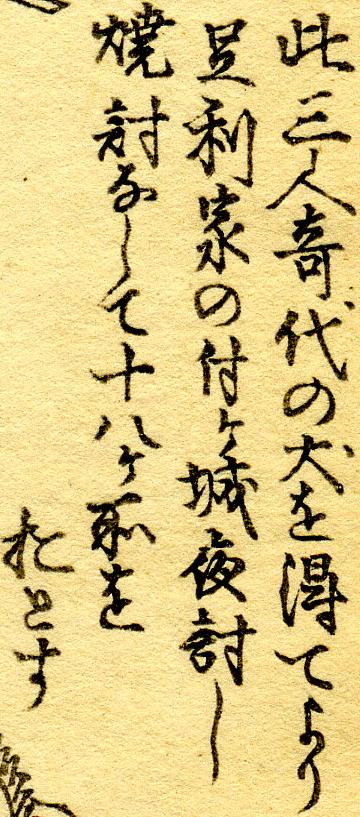 此三人奇代の犬を得てより
足利家の付ヶ城夜討し
焼討なして十八ヶ所を
おとす